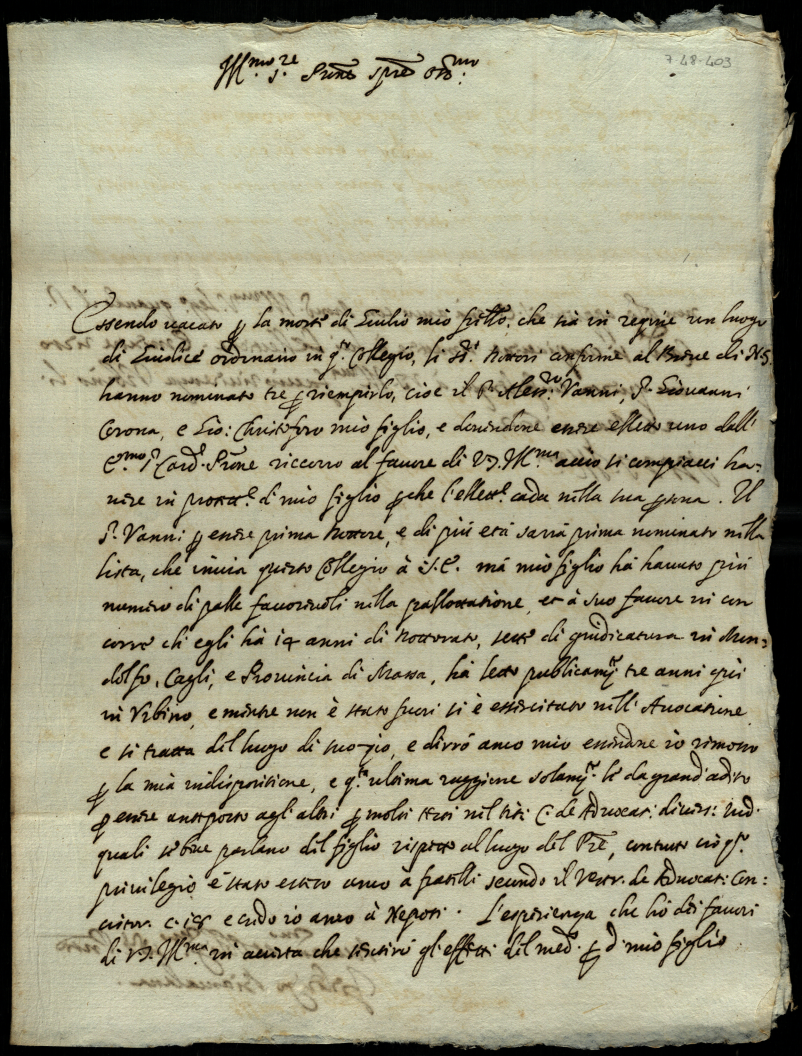 7-48-403
M.mo s.re Prone oss.mo
Essendo vacato p la morte di Giulio mio frĩlo, che stà in regine un luogo
di Giudice ordinario in q.o Collegio, li ss.i Dottori conforme al Breve di N.S.
hanno nominato tre p riempirlo, cioè il S.r Aless.ro Vanni, S.r Giovanni
Corona, e Gio: Christoforo mio figlio, e dovendone essere eletto uno dall'
E.mo S.r Card. Prone ricorro al favore di V.S. M.ma acciò si compiacci ha-
vere in protett.e d.o mio figlio p che l'elett.e cada nella sua psona. Il
S.r Vanni p essere prima Dottore, e di più età sarrà prima nominato nella
lista, che invia questo Collegio à S.E. mà mio figlio hà havuto più
numero di palle favorevoli nella pallottatione, et à suo favore vi con
corre ch'egli hà 14 anni di Dottorato, sette di giudicatura in Mon-
dolfo, Cagli, e Provincia di Massa, hà letto publicam.te tre anni quì
in Urbino, e mentre non è stato fuori si è essercitato nell'Avocatione
e si tratta del luogo di suo zio, e dirrò anco mio essendone io rimosso
p la mia indispositione, e q.ta ultima raggione solam.te li dà grand'adito
p essere anteposto agli altri p molti testi nel tit: C. de Advocat: divers: Iud.
quali se bene parlano del figlio rispetto al luogo del Pre, contutto ciò q.to
privilegio è stato esteso anco à fratelli secondo il de Advocat: Con:
c. 18 e credo io anco à Nepoti. L'esperienza che hò dei favori
di V.S. M.ma m'accerta che sentirò gl'effetti del med.o p d.o mio figlio